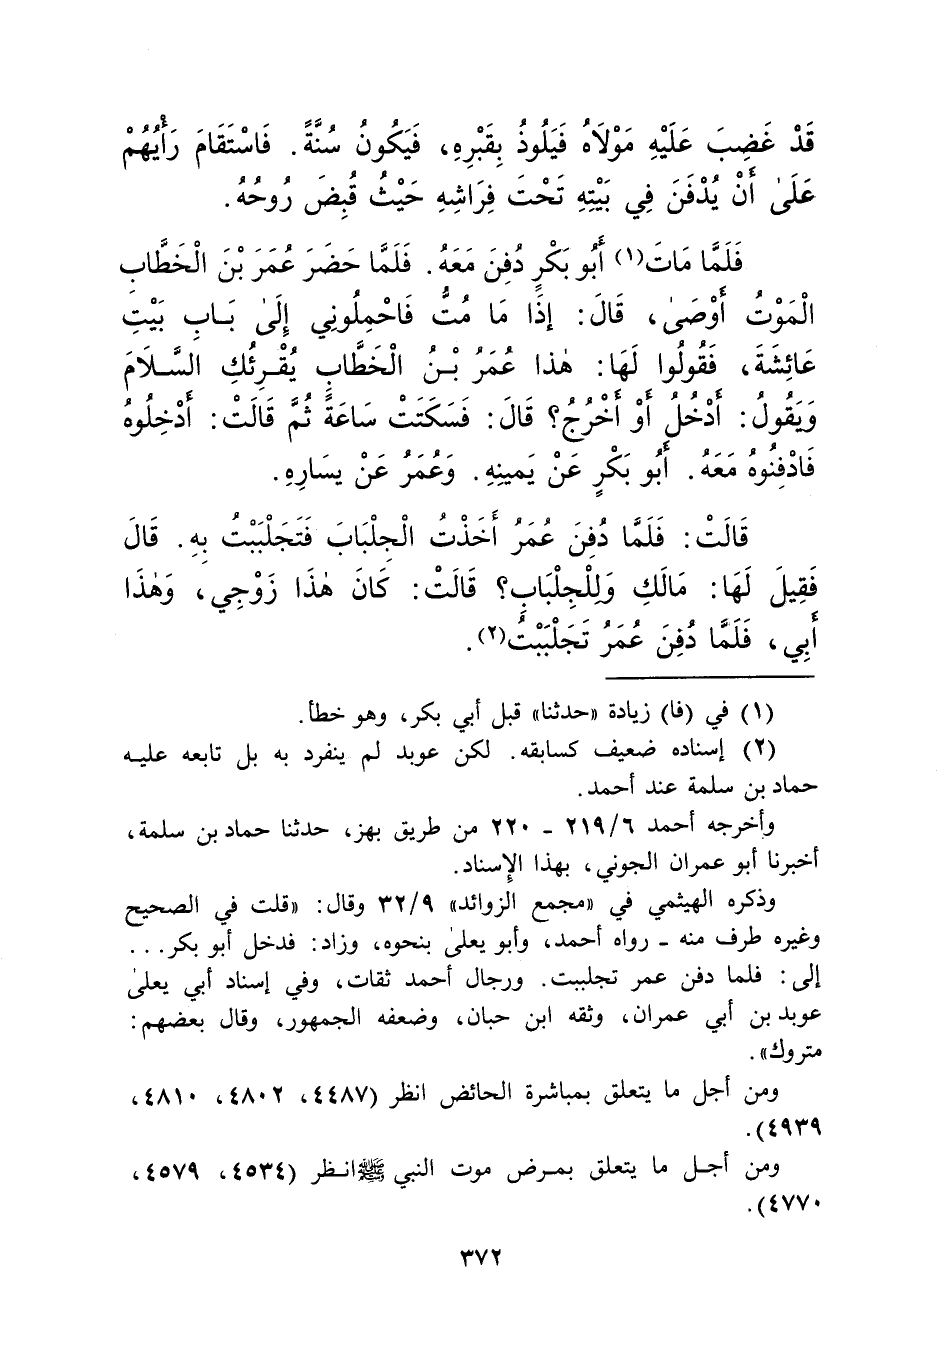 قَدْ غَضِبَ عَلَيْهِ مَوْلَاهُ فَيَلُوذُ بِقَبْرِهِ، فَيَكُونُ سُنَّةً. فَاسْتَقَامَ رَأْيُهُمْ
عَلَىٰ أَنْ يُدْفَنَ فِي بَيْتِهِ تَحْتَ فِرَاشِهِ حَيْثُ قُبِضَ رُوحُهُ.
فَلَمَّا مَاتَ(١) أَبُو بَكْرٍ دُفِنَ مَعَهُ. فَلَمَّا حَضَرَ عُمَرَ بْنَ الْخَطَّابِ
الْمَوْتُ أَوْصَىٰ، قَالَ: إِذَا مَا مُتُّ فَاحْمِلُونِي إِلَىٰ بَابِ بَيْتِ
عَائِشَةَ، فَقُولُوا لَهَا: هٰذا عُمَرُ بْنُ الْخَطَّابِ يُقْرِئُكِ السَّلَامَ
وَيَقُولُ: أَدْخُلُ أَوْ أَخْرُجُ؟ قَالَ: فَسَكَتَتْ سَاعَةً ثُمَّ قَالَتْ: أَدْخِلُوهُ
فَادْفِنُوهُ مَعَهُ. أَبُو بَكْرٍ عَنْ يَمينِهِ. وَعُمَرُ عَنْ يسَارِهِ.
قَالَتْ: فَلَمَّا دُفِنَ عُمَرُ أَخَذْتُ الْجِلْبَابَ فَتَجَلْبَبْتُ بِهِ. قَالَ
فَقِيلَ لَهَا: مَالَكِ وَلِلْجِلْبَابِ؟ قَالَتْ: كَانَ هٰذَا زَوْجِي، وَهٰذَا
أَبِي، فَلَمَّا دُفِنَ عُمَرُ تَجَلْبَبْتُ(٢).
(١) في (فا) زيادة «حدثنا» قبل أبي بكر، وهو خطأ.
(٢) إسناده ضعيف كسابقه. لكن عوبد لم ينفرد به بل تابعه عليه
حماد بن سلمة عند أحمد.
وأخرجه أحمد ٢١٩/٦ - ٢٢٠ من طريق بهز، حدثنا حماد بن سلمة،
أخبرنا أبو عمران الجوني، بهذا الإسناد.
وذكره الهيثمي في «مجمع الزوائد» ٣٢/٩ وقال: «قلت في الصحيح
وغيره طرف منه - رواه أحمد، وأبو يعلىٰ بنحوه، وزاد: فدخل أبو بكر...
إلى: فلما دفن عمر تجلببت. ورجال أحمد ثقات، وفي إسناد أبي يعلىٰ
عوبد بن أبي عمران، وثقه ابن حبان، وضعفه الجمهور، وقال بعضهم:
متروك».
ومن أجل ما يتعلق بمباشرة الحائض انظر (٤٤٨٧، ٤٨٠٢، ٤٨١٠،
٤٩٣٩).
ومن أجل ما يتعلق بمرض موت النبي ﷺ انظر (٤٥٣٤، ٤٥٧٩،
٤٧٧٠).
٣٧٢